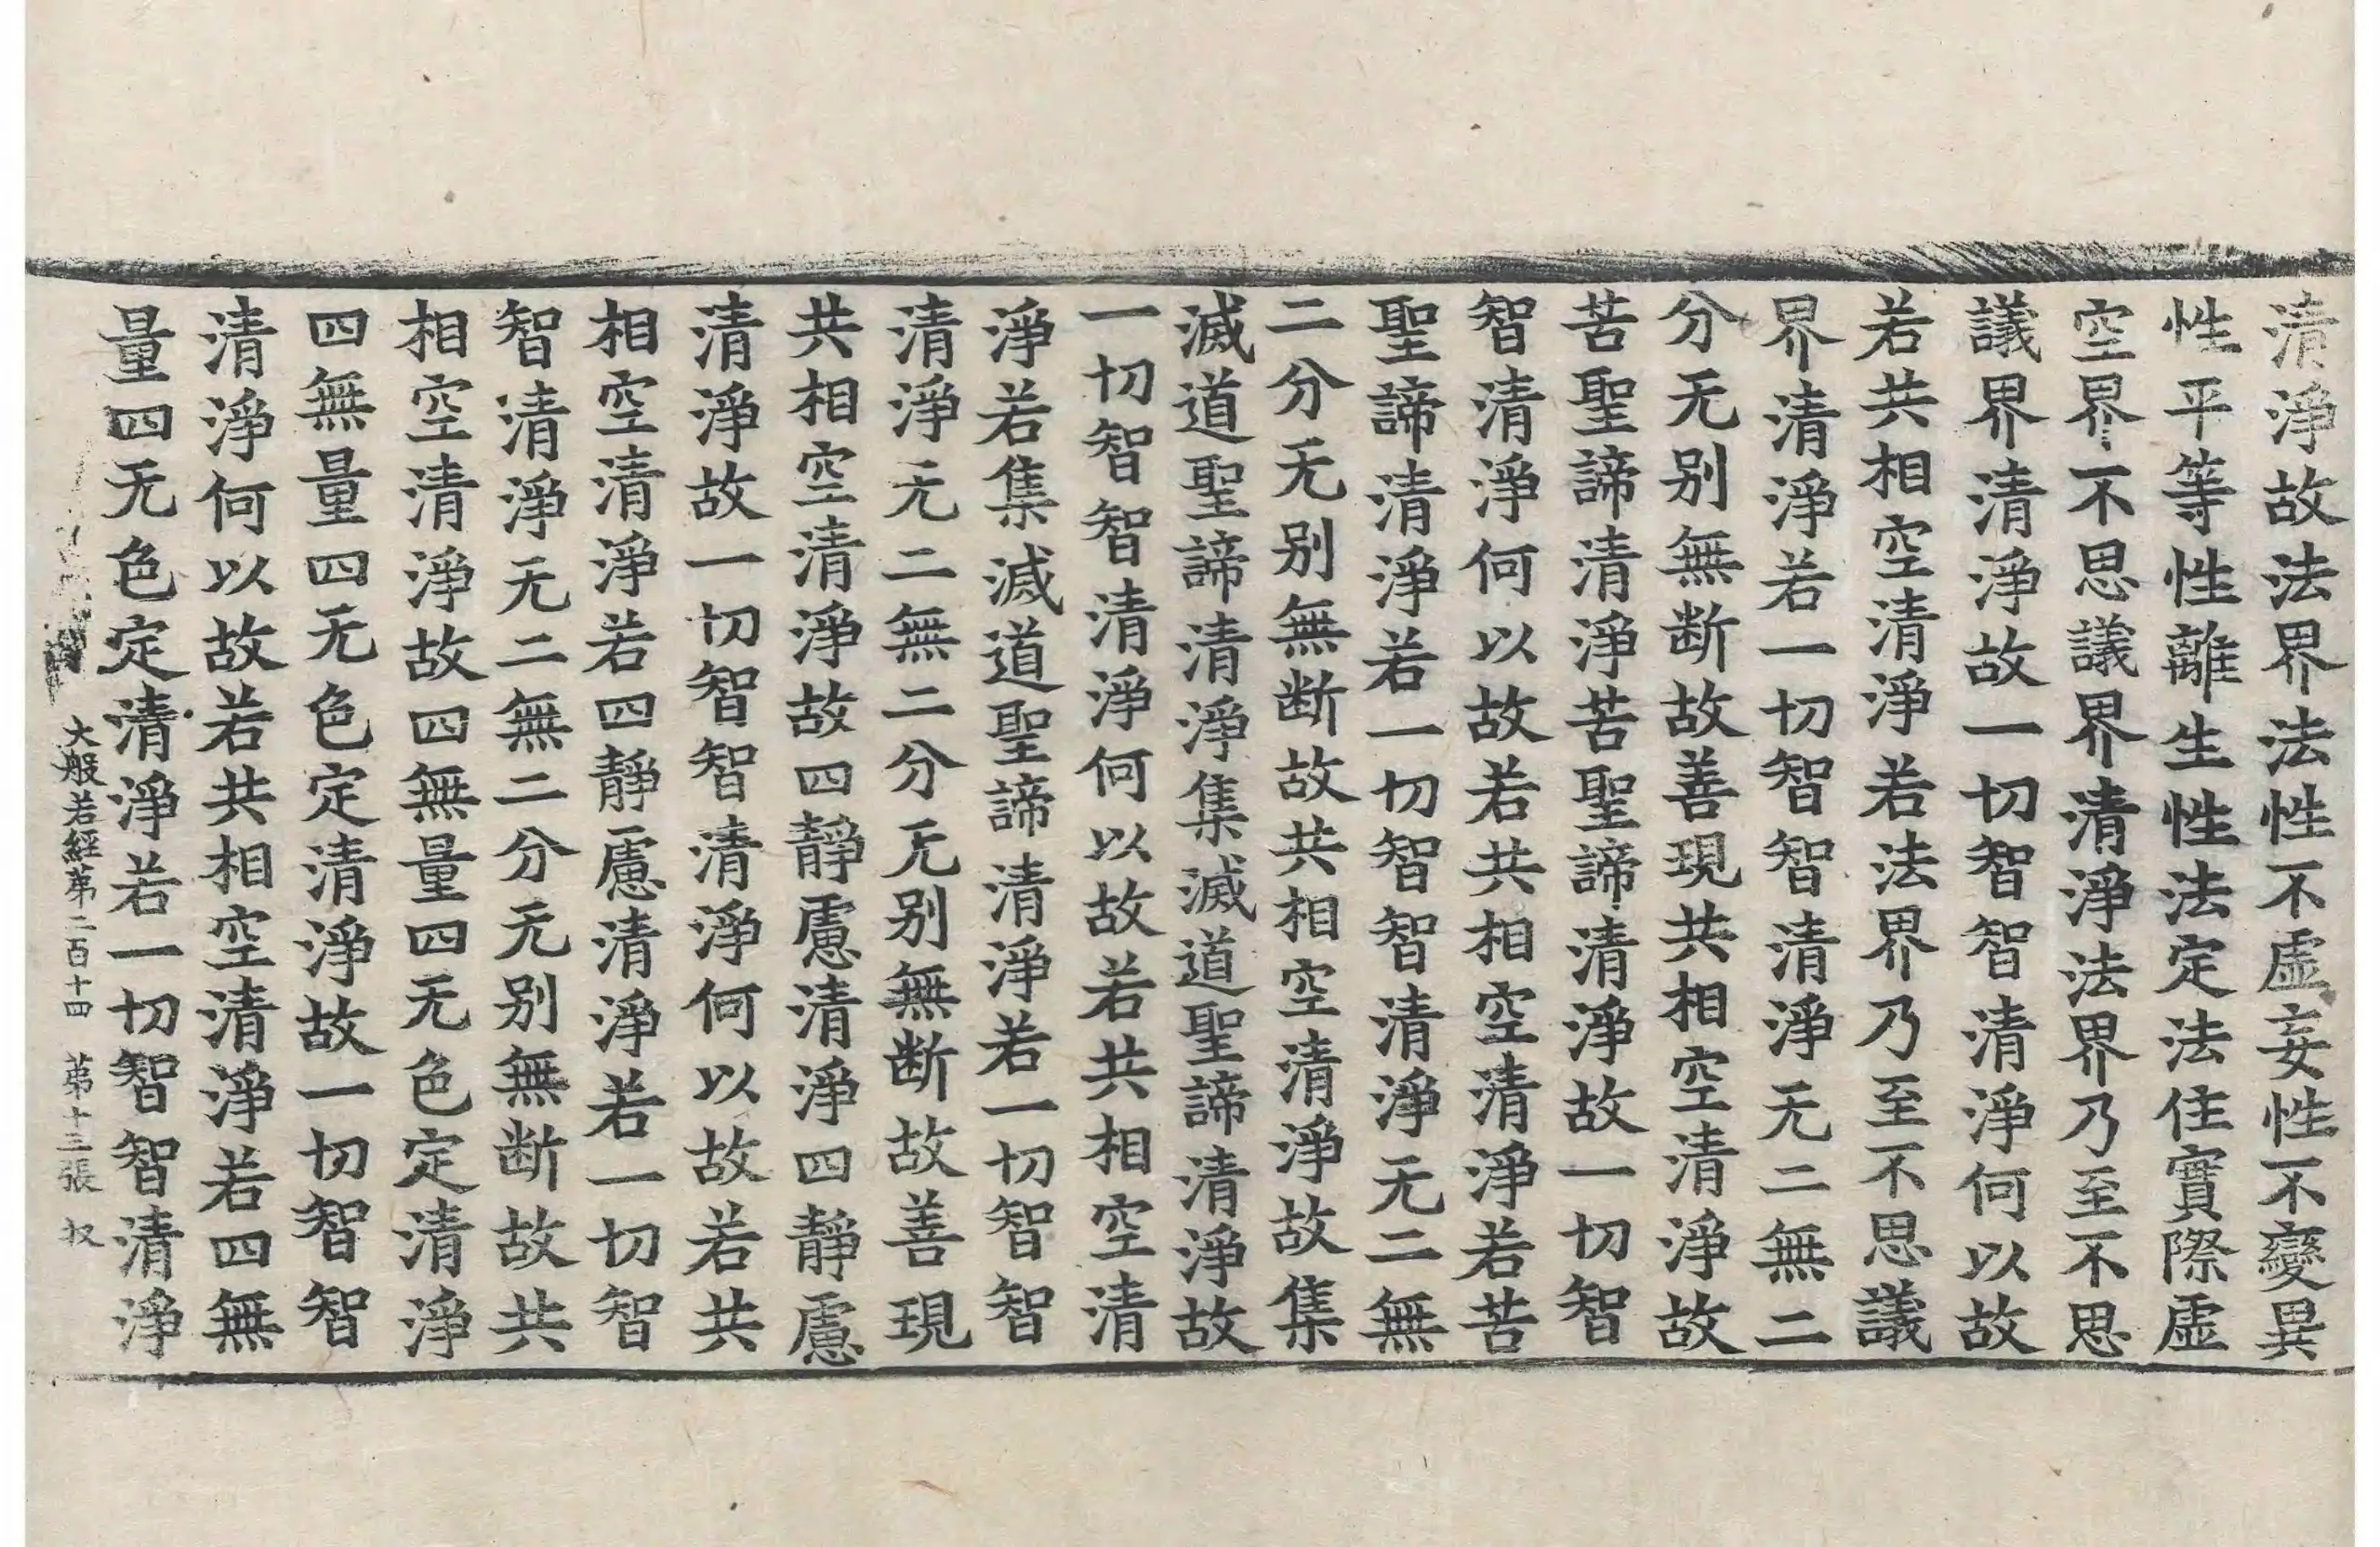 清淨故法界法性不虛妄性不變異
性平等性離生性法定法住實際虛
空界不思議界清淨法界乃至不思
議界清淨故一切智智清淨何以故
若共相空清淨若法界乃至不思議
界清淨若一切智智清淨无二無二
分无别無断故善現共相空清淨故
苦聖諦清淨苦聖諦清淨故一切智
智清淨何以故若共相空清淨若苦
聖諦清淨若一切智智清淨无二無
二分无别無断故共相空清淨故集
滅道聖諦清淨集滅道聖諦清淨故
一切智智清淨何以故若共相空清
淨若集滅道聖諦清淨若一切智智
清淨无二無二分无别無断故善現
共相空清淨故四靜慮清淨四靜慮
清淨故一切智智清淨何以故若共
相空清淨若四靜慮清淨若一切智
智清淨无二無二分无别無断故共
相空清淨故四無量四无色定清淨
四無量四无色定清淨故一切智智
清淨何以故若共相空清淨若四無
量四无色定清淨若一切智智清淨
大般若經苐二百十四 苐十三張 奴